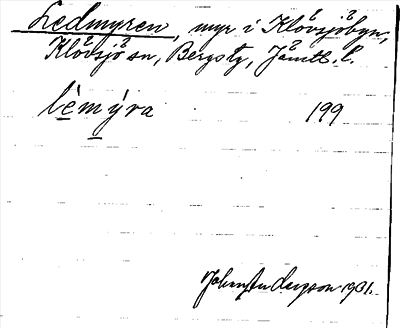 Ledmyren, myr i Klövsjöbyn,
Klövsjö sn, Bergs tg, Jämtl. l.
lèmýra 199
Johan Andersson 1931.